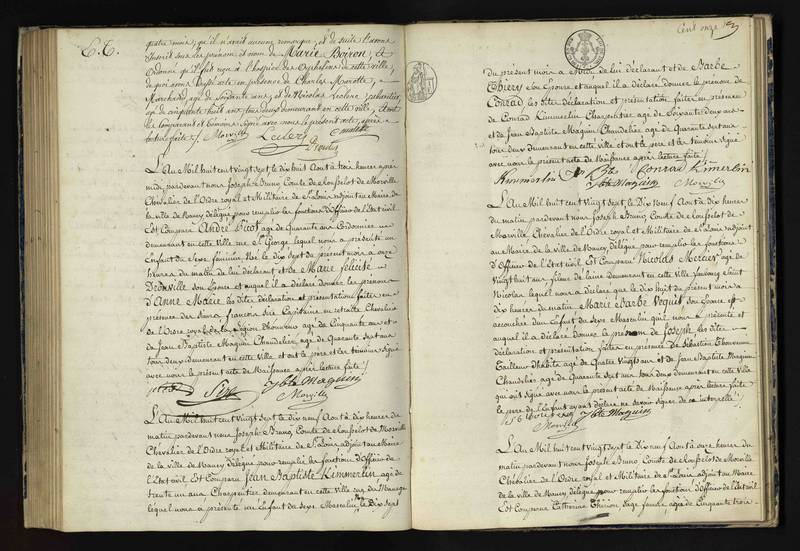 E.T.
quatre mois, qu'il n'avait aucune remarque, et de suite l'avons
inscrit sous les prénom et nom de Marie Boiron, et
ordonné qu'il fut remis à l'hospice des Orphelins de cette ville,
de quoi avons dressé acte en présence de Charles Marotte,
Marchand, agé de soixante ans, et de Nicolas Leclere
agé de cinquante huit ans tous deux demeurant en cette ville, dont
le comparant et témoins signé avec nous le présent acte, après
lecture faite. Morville Leclerc Marotte
L'An Mil huit cent vingt sept le dix huit Aout à trois heures après
midi, pardevant nous Joseph Bruno Comte de Rousselot de Morville
Chevalier de l'Ordre royal et Militaire de St Louis, adjoint au Maire de
la ville de Nancy délégué pour remplir les fonctions d'Officier de l'état civil
Est Comparu André Picot agé de quarante ans Cordonnier
demeurant en cette ville rue St George lequel nous a présenté un
Enfant du sexe féminin Né le dix sept du présent mois à onze
heures du matin de lui déclarant et de Marie Félicité
Dronville son Epouse et auquel il a déclaré donner les prénoms
d'Anne Marie, les dites déclaration et présentation faites en
présence des Sieurs françois Sirc Capitaine en retraite Chevalier
de l'Ordre royal de la Légion d'honneur agé de Cinquante ans et
de Jean Baptiste Maguin Chandelier, agé de Quarante sept ans
tous deux demeurant en cette Ville et ont le père et les témoins signé
avec nous le présent acte de Naissance après lecture faite.
picot Sirc Jbte Maguin
Morville
L'An Mil huit cent vingt sept le dix neuf Aout à dix heures du
matin pardevant nous Joseph Bruno Comte de Rousselot de Morville
Chevalier de l'Ordre royal et Militaire de St Louis adjoint au Maire
de la ville de Nancy délégué pour remplir les fonctions d'Officier de
l'état civil Est Comparu Jean Baptiste Kimmerlin agé de
trente un ans Charpentier demeurant en cette ville rue du Manège
lequel nous a présenté un Enfant du sexe Masculin, Né le Dix Sept
Cent onze
du présent mois à de lui déclarant et de Barbe
Thiery son Epouse et auquel il a déclaré donner le prénom de
Conrad les dites déclaration et présentation faites en présence
de Conrad Kimmerlin Charpentier agé de Soixante deux ans
et de Jean Baptiste Maguin Chandelier agé de Quarante sept ans
tous deux demeurant en cette ville et ont le père et les témoins signé
avec nous le présent acte de Naissance après lecture faite.
Kimmerlin Bte Conrad Kimerlin
Jbte Maguin Morville
L'An Mil huit cent vingt sept, le Dix neuf Aout à dix heures
du matin pardevant nous Joseph Bruno Comte de Rousselot de
Morville, Chevalier de l'Ordre royal et Militaire de St Louis adjoint
au Maire de la ville de Nancy, délégué pour remplir les fonctions
d'Officier de l'état civil Est Comparu Nicolas Mercier agé de
vingt huit ans fileur de laine demeurant en cette ville faubourg Saint
Nicolas lequel nous a déclaré que le dix huit du présent mois à
dix heures du matin Marie Barbe Voquit son Epouse est
accouchée d'un Enfant du sexe Masculin qu'il nous a présenté et
auquel il a déclaré donner le prénom de Joseph, les dites
déclaration et présentation faites en présence de Sébastien Thouvenin
Tailleur d'habits agé de Quatre Vingts ans et de Jean Baptiste Maguin
Chandelier agé de Quarante sept ans tous deux demeurant en cette Ville
qui ont signé avec nous le présent acte de Naissance après lecture faite
le père de l'Enfant ayant déclaré ne savoir signer de ce interpellé.
Jbte Maguin
Morville
L'An Mil huit cent vingt sept le Dix neuf Aout à onze heures du
matin, pardevant nous Joseph Bruno Comte de Rousselot de Morville
Chevalier de l'Ordre royal et Militaire de St Louis, adjoint au Maire
de la ville de Nancy, délégué pour remplir les fonctions d'Officier de l'état civil
Est Comparue Catherine Thirion Sage femme, agée de Cinquante trois